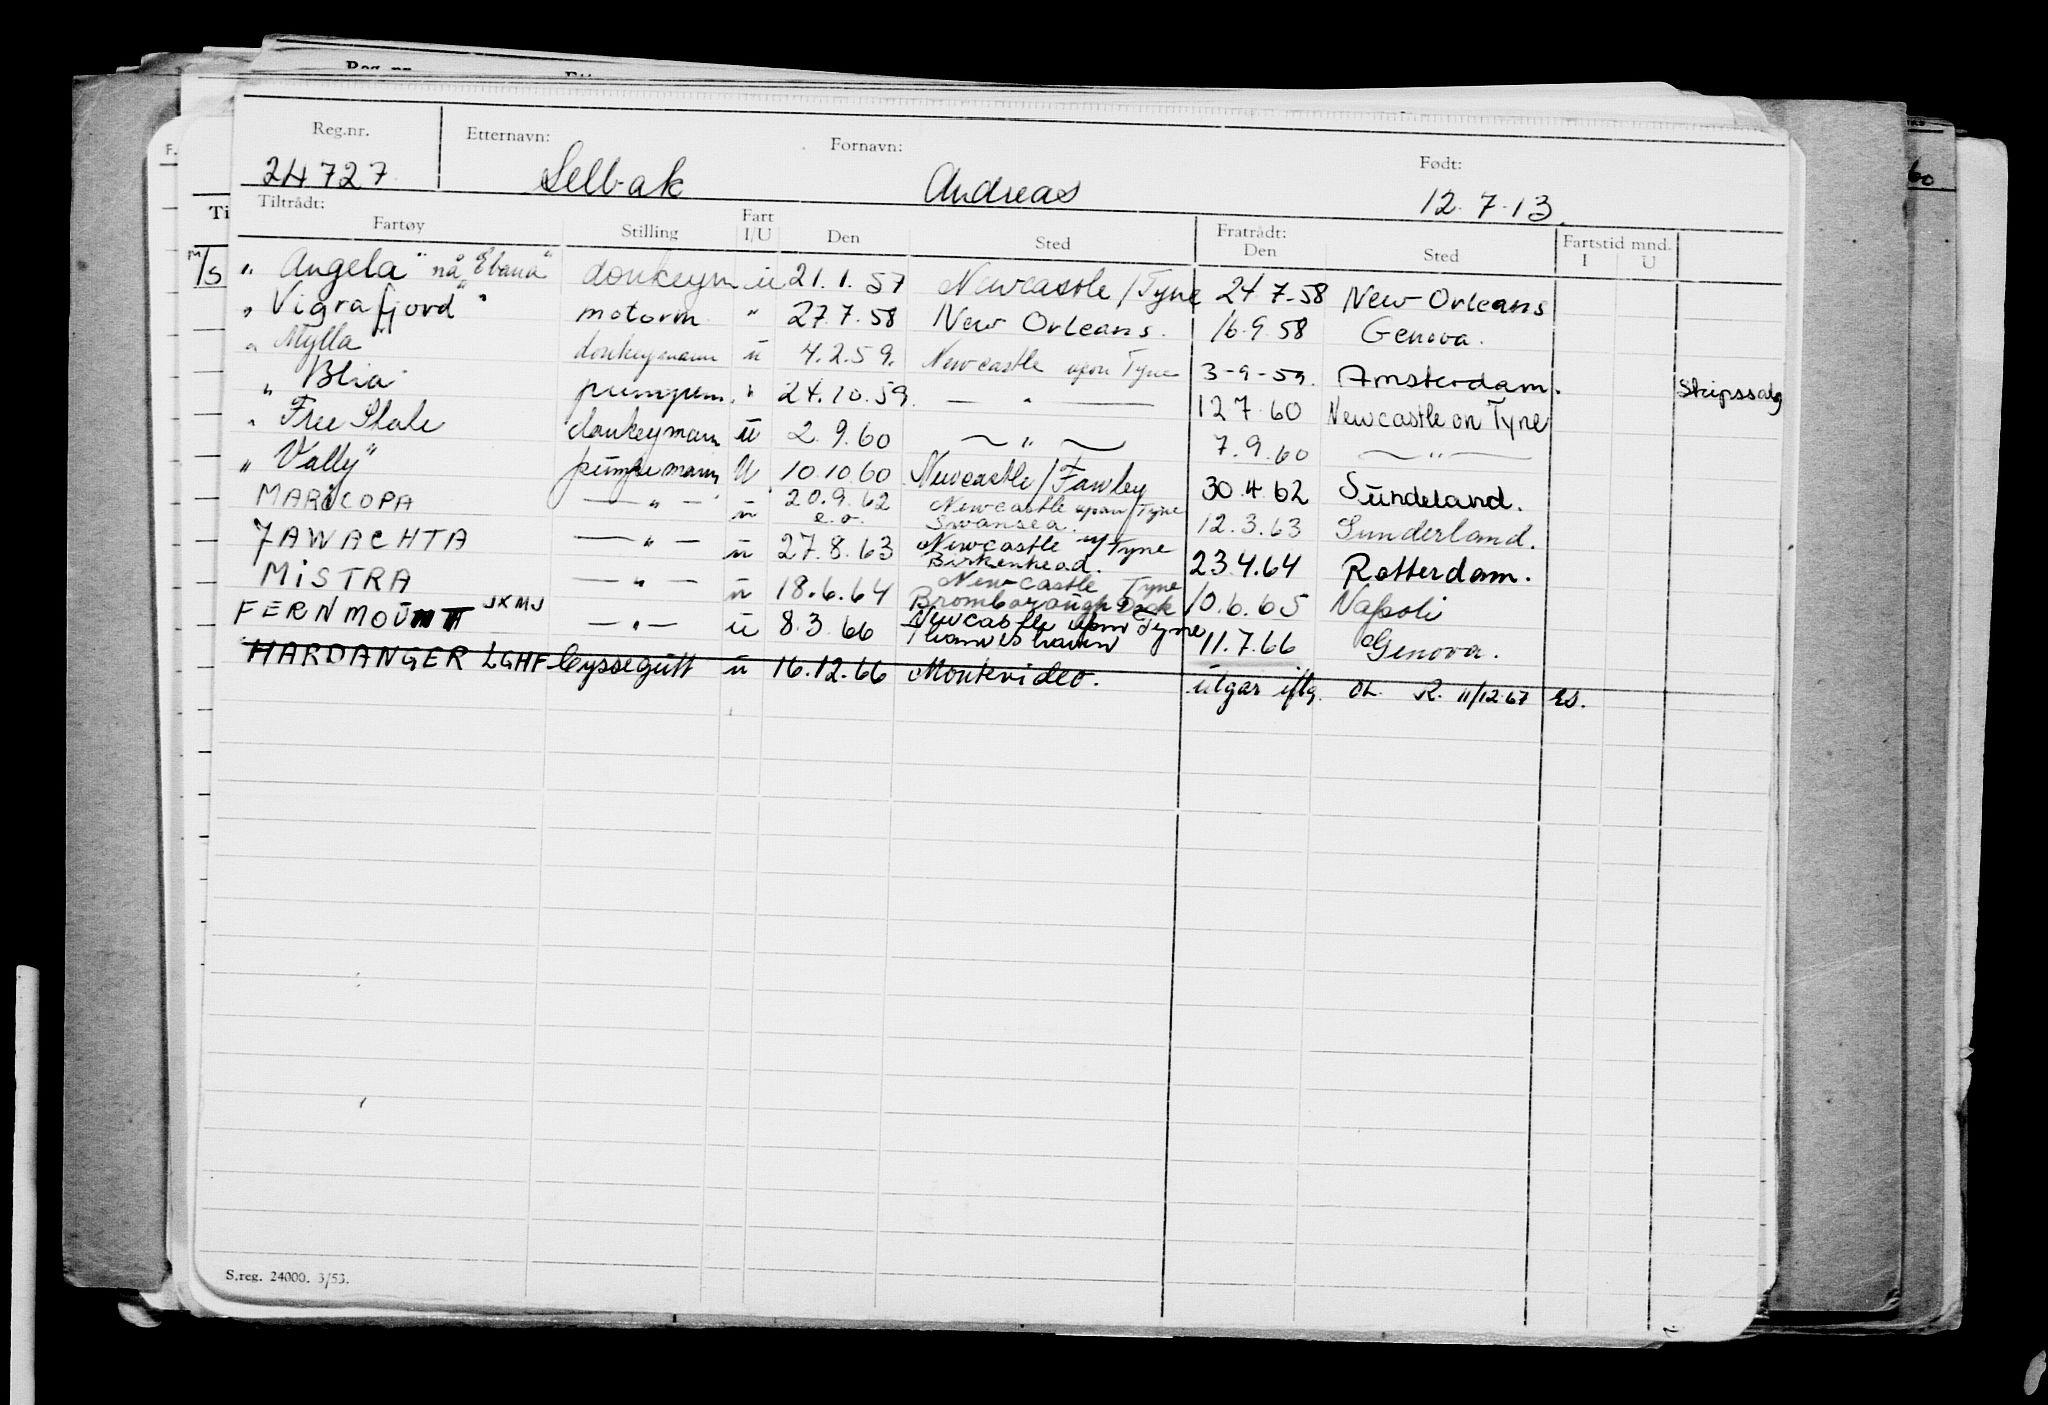 Reg.nr. Etternavn: Fornavn: Født:
24727 Selbak Andreas 12.7.13.
Tiltrådt: Fratrådt: Fartstid mnd.
Fartøy Stilling Fart I/U Den Sted Den Sted I U
M/S " Angela" nå "Ebana" donkeym u 21.1.57 Newcastle/Tyne 24.7-58 New Orleans
" Vigrafjord " motorm " 27.7.58 New Orleans. 16.9.58 Genova.
" Mylla donkeymann u 4.2.59. Newcastle upon Tyne 3-9-59. Amsterdam. Skipssalg
" Blia pumpem. " 24.10.59. — " — 12 7.60 Newcastle on Tyne
" Free State donkeymann u 2.9.60 — " — 7.9.60 — " —
" Vally" pumpemann U 10.10.60 Newcastle/Fawley 30.4.62 Sundeland.
MARICOPA — " — u 20.9.62 e.o. Newcastle upon/Tyne Swansea. 12.3.63 Sunderland.
JAWACHTA — " — u 27.8.63 Newcastle u/Tyne Birkenhead. 23.4.64 Rotterdam.
MISTRA — " — u 18.6.64 Newcastle Tyne Bromborough Dock 10.6.65 Napoli
FERNMOUNT JXMJ — " — u 8.3.66 Newcastle upon Tyne 11.7.66 Genova.
HARDANGER LGHF Cyssegutt u 16.12.66 Montevideo. utgår iflg. OL. R. 11/12.67 es.
S.reg. 24000. 3/53.